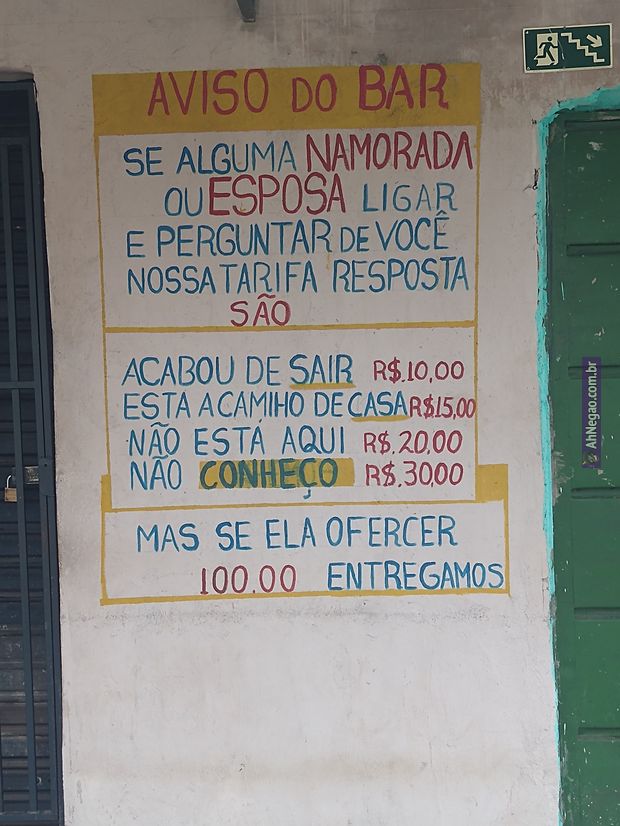 AVISO DO BAR
SE ALGUMA NAMORADA
OU ESPOSA LIGAR
E PERGUNTAR DE VOCÊ
NOSSA TARIFA RESPOSTA
SÃO
ACABOU DE SAIR R$.10,00
ESTA A CAMIHO DE CASA R$15,00
NÃO ESTÁ AQUI R$.20,00
NÃO CONHEÇO R$.30,00
MAS SE ELA OFERCER
100.00 ENTREGAMOS
AhNegao.com.br